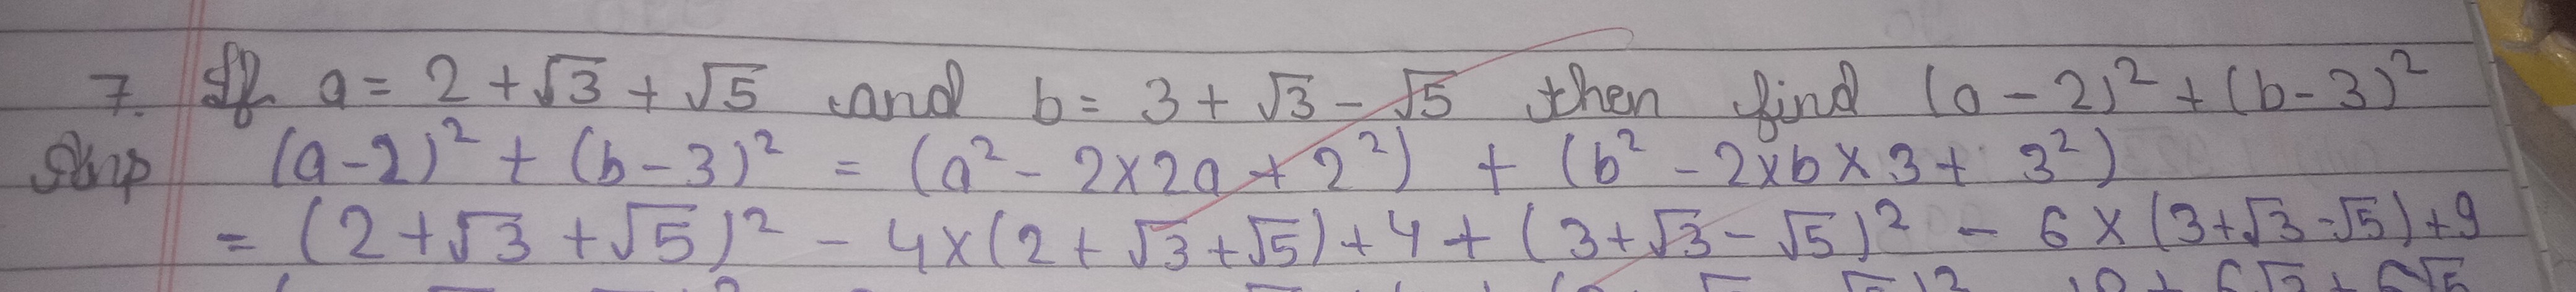 7. If a = 2 + √3 + √5 and b = 3 + √3 - √5 then find (a - 2)² + (b - 3)²
(a - 2)² + (b - 3)² = (a² - 2×2a + 2²) + (b² - 2×b×3 + 3²)
= (2 + √3 + √5)² - 4×(2 + √3 + √5) + 4 + (3 + √3 - √5)² - 6×(3 + √3 - √5) + 9